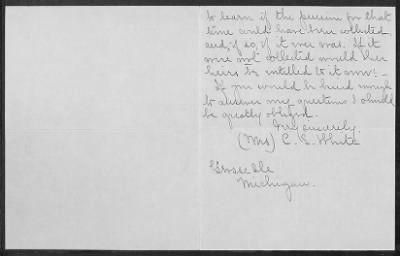 to learn if the pension for that
time could have been collected
and, if so, if it ever was. If it
were not collected would her
heirs be entitled to it now? –
If you would be kind enough
to answer my questions I should
be greatly obliged.
Very sincerely,
(Mrs) C. E. White
Grosse Ile
Michigan.